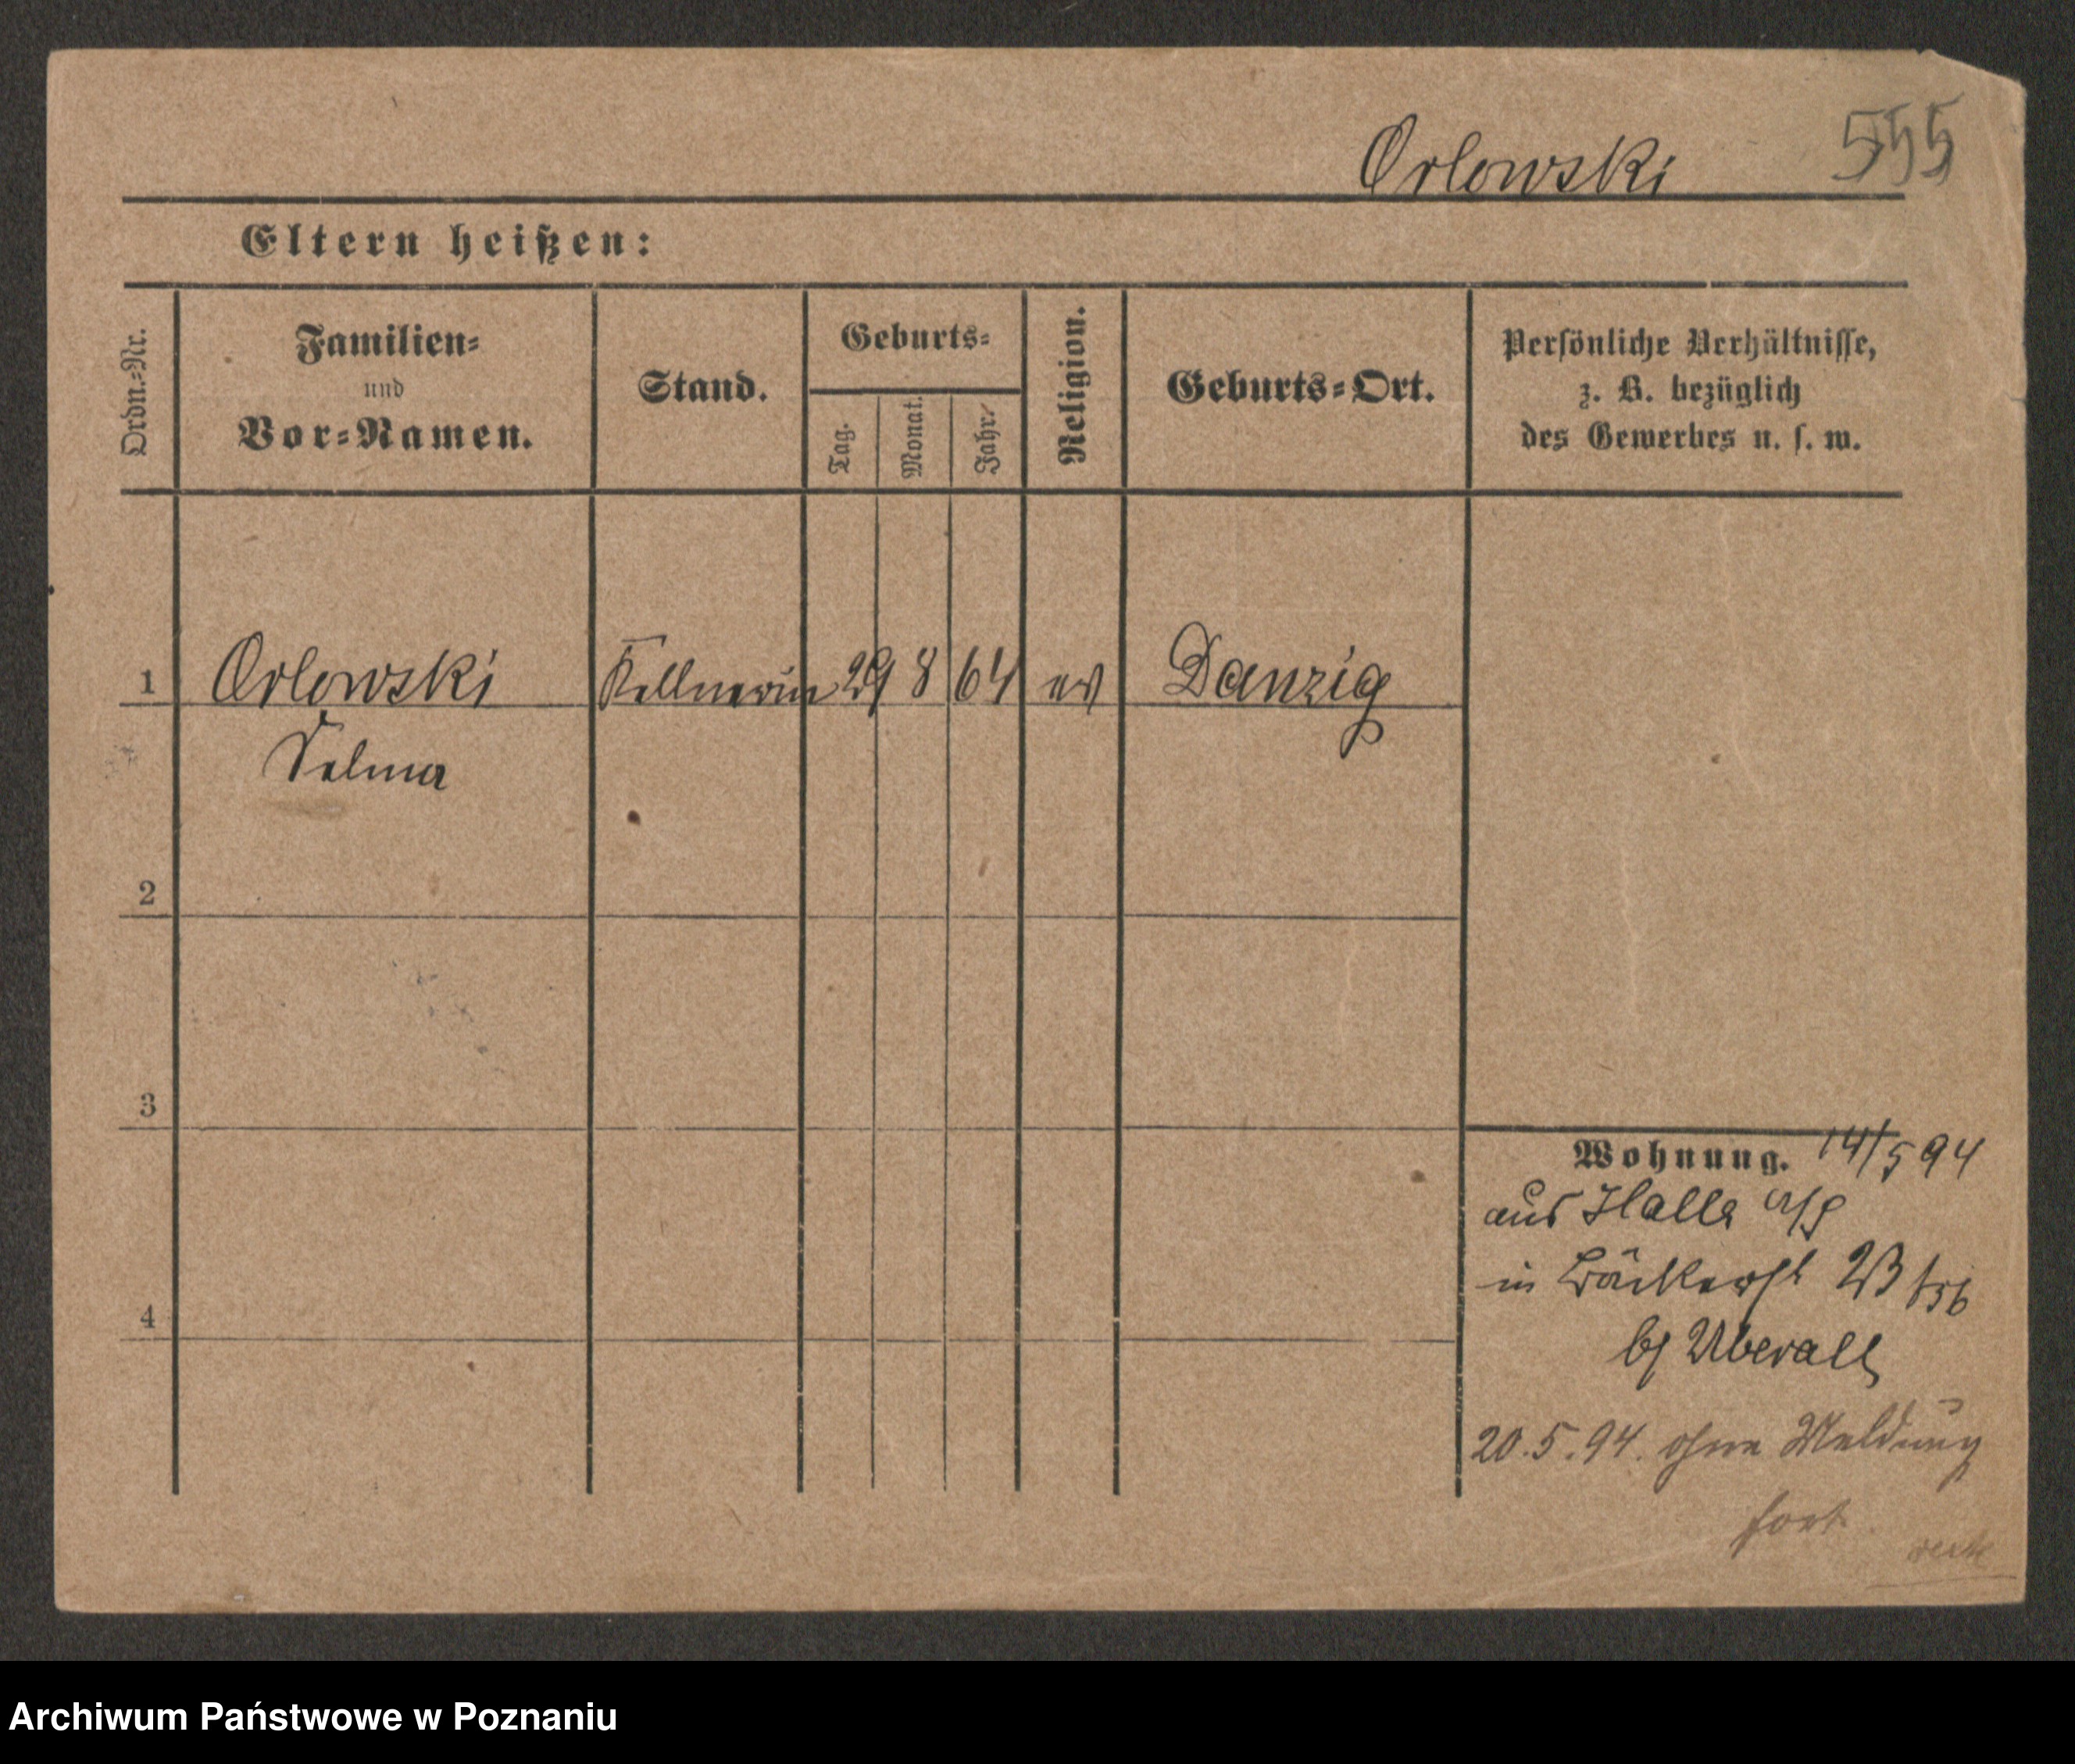 Orlowski 555
Eltern heißen:
Ordn.=Nr.
Familien=
und
Vor=Namen.
Stand.
Geburts=
Tag.
Monat.
Jahr.
Religion.
Geburts=Ort.
Persönliche Verhältnisse,
z. B. bezüglich
des Gewerbes u. s. w.
1 Orlowski Kellnerin 29 8 64 ev Danzig
Selma
2
3
4
Wohnung. 14/5 94
aus Halle a/S
in Bäckerst 23
bei Uberall
20.5.94. ohne Meldung
fort
Archiwum Państwowe w Poznaniu